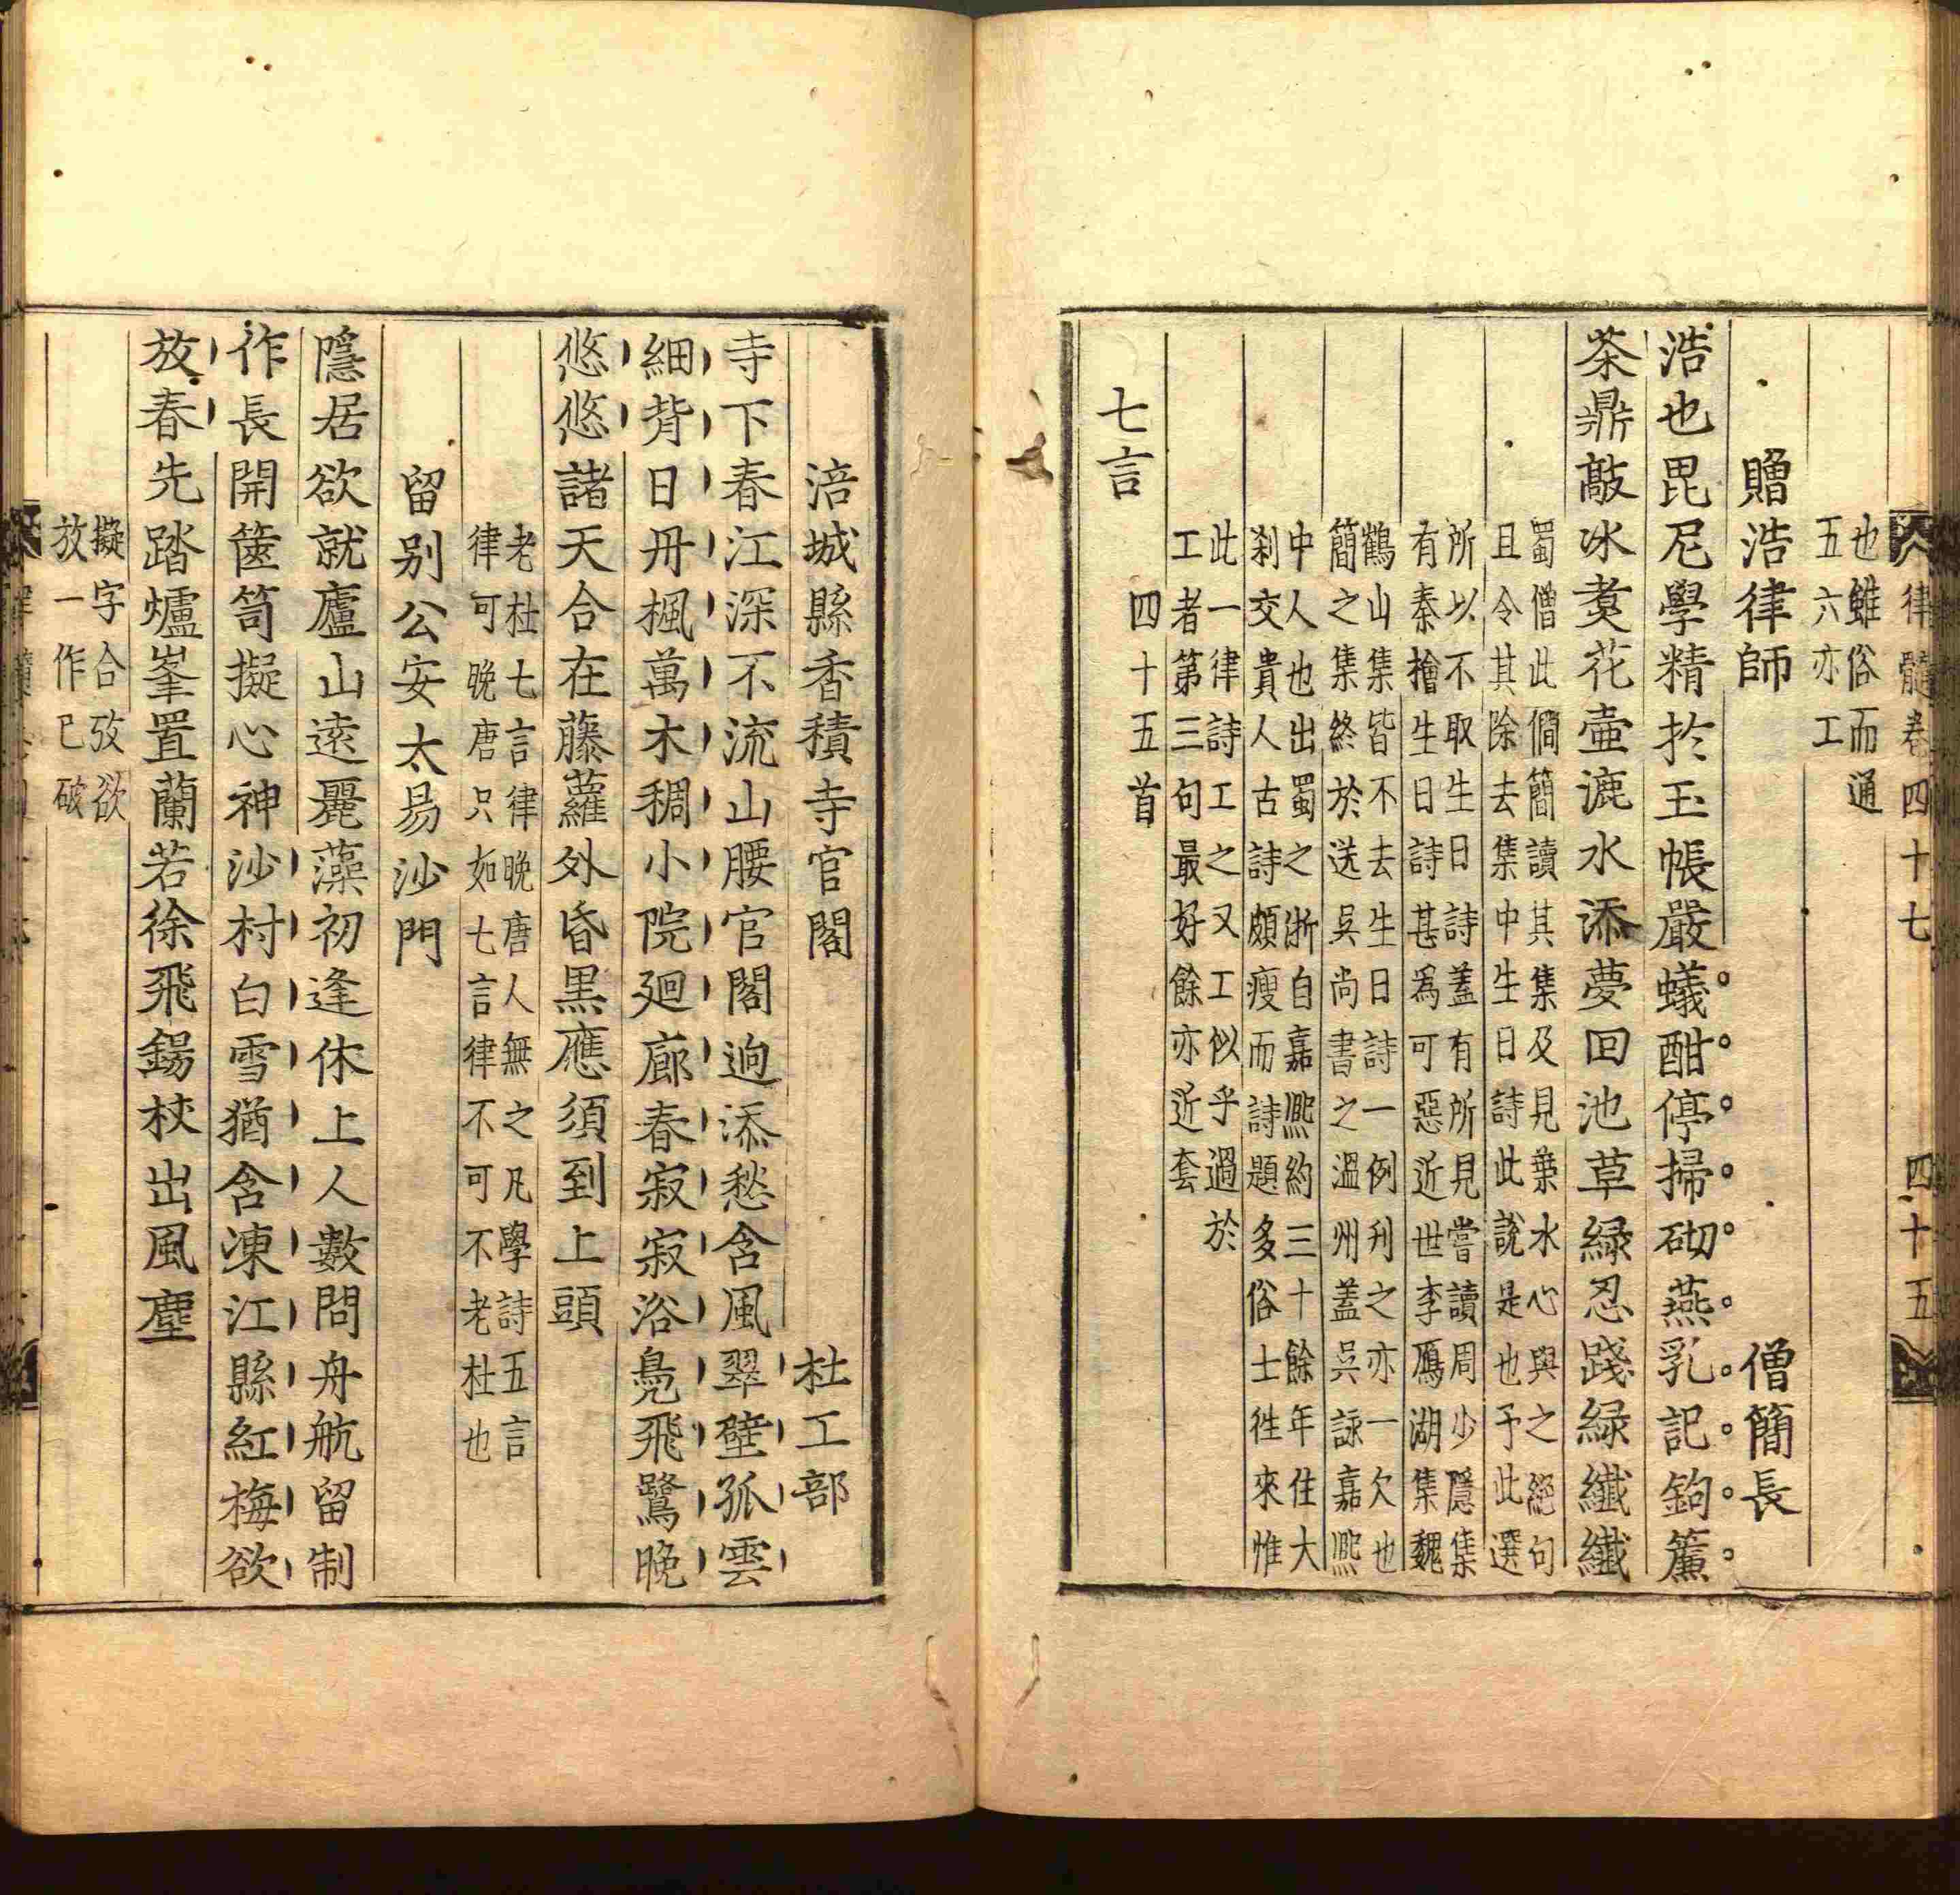 律髓卷四十七　四十五
也雖俗而通
五六亦工
贈浩律師　僧簡長
浩也毘尼學精扵玉帳嚴蟻酣停掃砌燕乳記鉤簾
茶鼎敲冰煑花壷漉水添夢回池草緑忍踐緑纖纖
蜀僧此僴簡讀其集及見葉水心與之絕句
且令其除去集中生日詩此說是也予此選
所以不取生日詩蓋有所見嘗讀周少隱集
有秦檜生日詩甚爲可惡近世李鴈湖集魏
鶴山集皆不去生日詩一例刋之亦一欠也
簡之集終於送吳尚書之溫州蓋吳詠嘉熈
中人也出蜀之浙自嘉熈約三十餘年住大
刹交貴人古詩頗瘦而詩題多俗士徃來惟
此一律詩工之又工似乎過於
工者第三句最好餘亦近套
七言　四十五首
涪城縣香積寺官閣　杜工部
寺下春江深不流山腰官閣逈添愁含風翠壁孤雲
細背日丹楓萬木稠小院廻廊春寂寂浴鳧飛鷺晚
悠悠諸天合在藤蘿外昏黒應須到上頭
老杜七言律晚唐人無之凡學詩五言
律可晚唐只如七言律不可不老杜也
留别公安太易沙門
隱居欲就廬山遠麗藻初逢休上人數問舟航留制
作長開篋笥擬心神沙村白雪猶含凍江縣紅梅欲
放春先踏爐峯置蘭若徐飛錫杖出風塵
擬字合攷欲
放一作已破